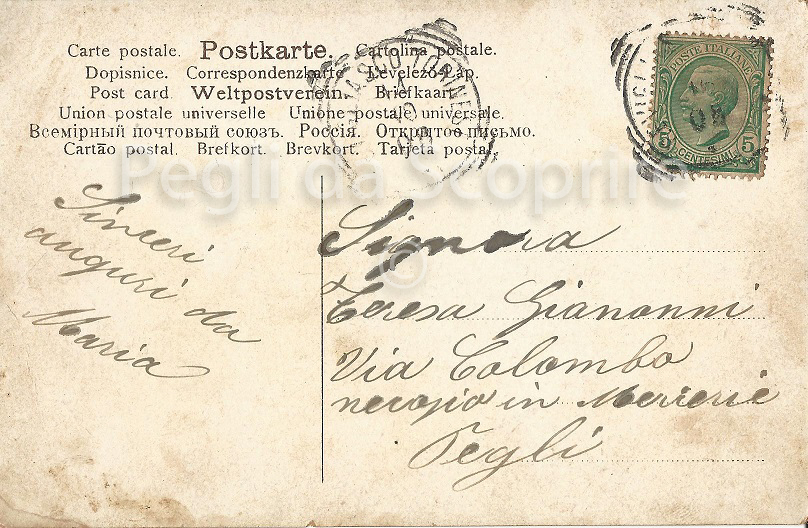 Carte postale. Postkarte. Cartolina postale.
Dopisnice. Correspondenzkarte Levelező-Lap.
Post card. Weltpostverein. Briefkaart.
Union postale universelle Unione postale universale.
Всемірный почтовый союзъ. Россія. Открытое письмо.
Cartão postal. Brefkort. Brevkort. Tarjeta postal.
POSTE ITALIANE
5 CENTESIMI 5
Pegli da Scoprire
©
Sinceri
auguri da
Maria
Signora
Teresa Gianonni
Via Colombo
negozio in Mercerie
Pegli